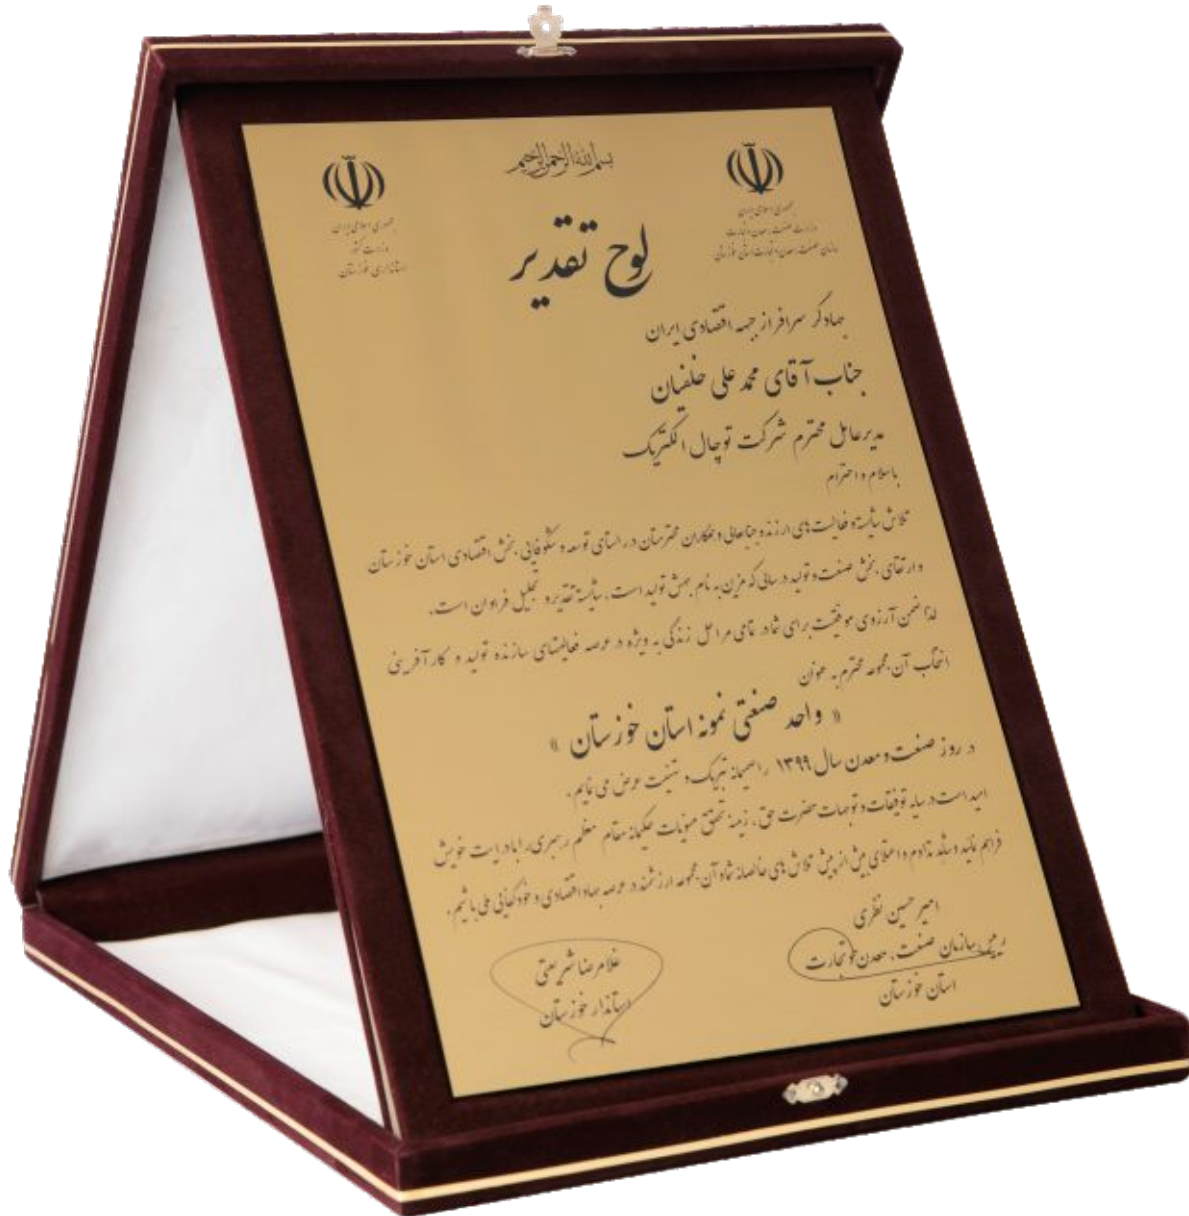 بسم الله الرحمن الرحیم
جمهوری اسلامی ایران
وزارت صنعت، معدن و تجارت
سازمان صنعت، معدن و تجارت استان خوزستان
جمهوری اسلامی ایران
وزارت کشور
استانداری خوزستان
لوح تقدیر
جهادگر سرافراز جبهه اقتصادی ایران
جناب آقای محمد علی حنفیان
مدیرعامل محترم شرکت توچال الکتریک
باسلام و احترام
تلاش شایسته و فعالیت های ارزنده جنابعالی و همکاران محترمتان در راستای توسعه و شکوفایی بخش اقتصادی استان خوزستان
و ارتقای بخش صنعت و تولید در سالی که مزین به نام جهش تولید است، شایسته تقدیر و تجلیل فراوان است.
لذا ضمن آرزوی موفقیت برای شما در تمامی مراحل زندگی به ویژه در عرصه فعالیتهای سازنده تولید و کارآفرینی
انتخاب آن مجموعه محترم به عنوان
« واحد صنعتی نمونه استان خوزستان »
در روز صنعت و معدن سال ۱۳۹۹ را صمیمانه تبریک و تهنیت عرض می نمایم.
امید است در سایه توفیقات و توجهات حضرت حق، زمینه تحقق منویات حکیمانه مقام معظم رهبری را با درایت خویش
فراهم نمائید و شاهد تداوم و اعتلای بیش از پیش تلاش های خالصانه شما و آن مجموعه ارزشمند در عرصه جهاد اقتصادی و خودکفائی ملی باشیم.
امیر حسین نظری
رییس سازمان صنعت، معدن و تجارت
استان خوزستان
غلامرضا شریعتی
استاندار خوزستان